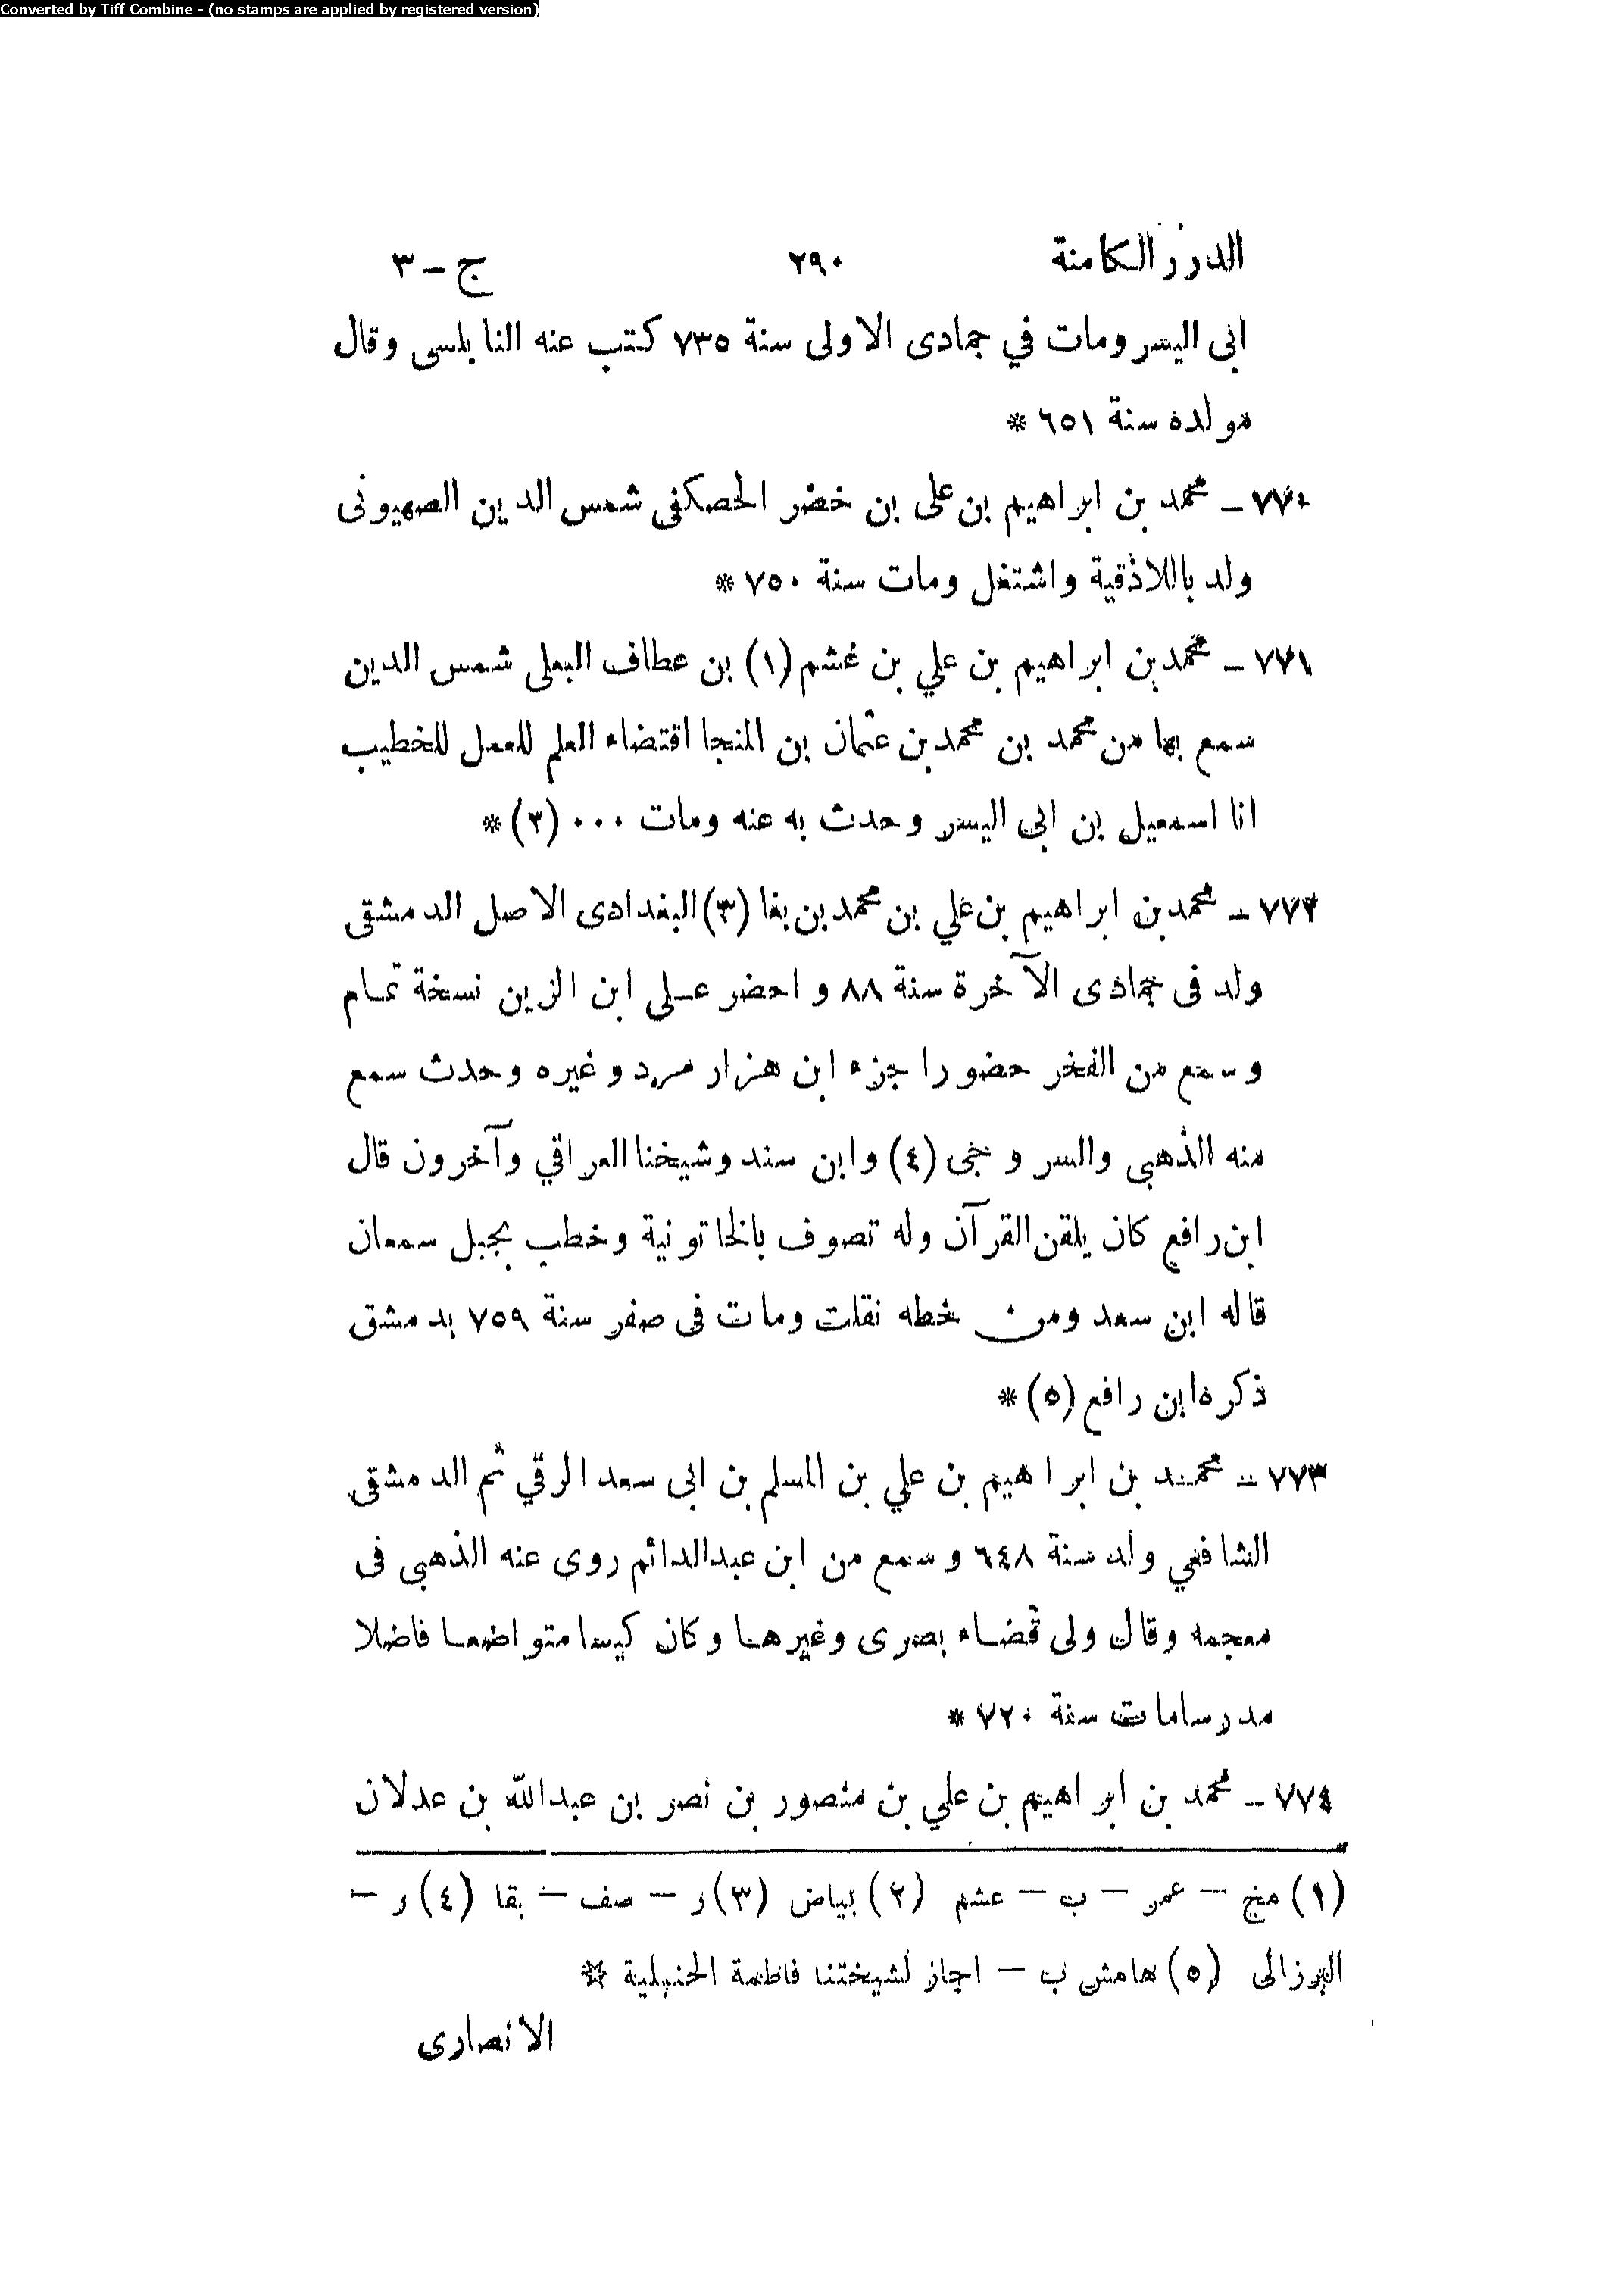 Converted by Tiff Combine - (no stamps are applied by registered version)
الدرر الكامنة ٢٩٠ ج – ٣
ابى اليسر ومات في جمادى الاولى سنة ٧٣٥ كتب عنه النابلسى وقال
مولده سنة ٦٥١ *
٧٧٠ – محمد بن ابراهيم بن على بن خضر الحصكفى شمس الدين الصهيونى
ولد باللاذقية واشتغل ومات سنة ٧٥٠ *
٧٧١ – محمد بن ابراهيم بن علي بن غشم (١) بن عطاف البعلى شمس الدين
سمع بها من محمد بن محمد بن عثمان بن المنجا اقتضاء العلم للعمل للخطيب
انا اسمعيل بن ابى اليسر وحدث به عنه ومات ٠٠٠ (٢) *
٧٧٢ – محمد بن ابراهيم بن علي بن محمد بن بغا (٣) البغدادى الاصل الدمشقى
ولد فى جمادى الآخرة سنة ٨٨ واحضر على ابن الزين نسخة تمام
وسمع من الفخر حضورا جزء ابن هزار مرد وغيره وحدث سمع
منه الذهبى والسروجى (٤) وابن سند وشيخنا العراقي وآخرون قال
ابن رافع كان يلقن القرآن وله تصوف بالخاتونية وخطب بجبل سمعان
قاله ابن سعد ومن خطه نقلت ومات فى صفر سنة ٧٥٩ بدمشق
ذكره ابن رافع (٥) *
٧٧٣ – محمد بن ابراهيم بن علي بن المسلم بن ابى سعد الرقي ثم الدمشقى
الشافعي ولد سنة ٦٤٨ وسمع من ابن عبدالدائم روى عنه الذهبى فى
معجمه وقال ولى قضاء بصرى وغيرها وكان كيسا متواضعا فاضلا
مدرسا مات سنة ٧٢٠ *
٧٧٤ – محمد بن ابراهيم بن علي بن منصور بن نصر بن عبدالله بن عدلان
(١) مخ – عمر – ب – عشم (٢) بياض (٣) ر – صف – بقا (٤) ر –
البرزالى (٥) هامش ب – اجاز لشيختنا فاطمة الحنبلية *
الانصارى